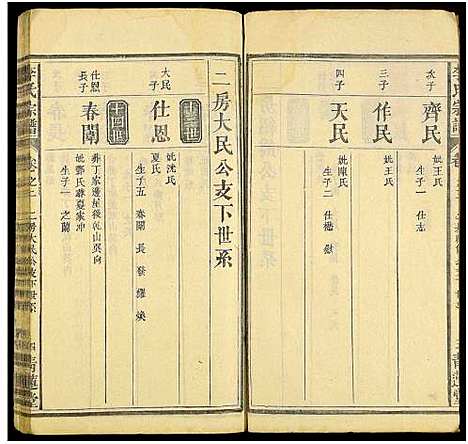 次子
齊民
妣王氏
生子一 仕志
三子
作民
妣王氏
四子
天民
妣陳氏
生子二 仕懋 慰
二房大民公支下世系
十三世
大民子
仕恩
妣沈氏
夏氏
生子五 春闈 長 發 耀 煥
十四世
仕恩長子
春闈
葬丁家邊屋後乾山巽向
妣鄧氏葬夏家冲
生子一 之蘭
李氏宗譜
卷之三 二房大民公支下世系
四 青蓮堂